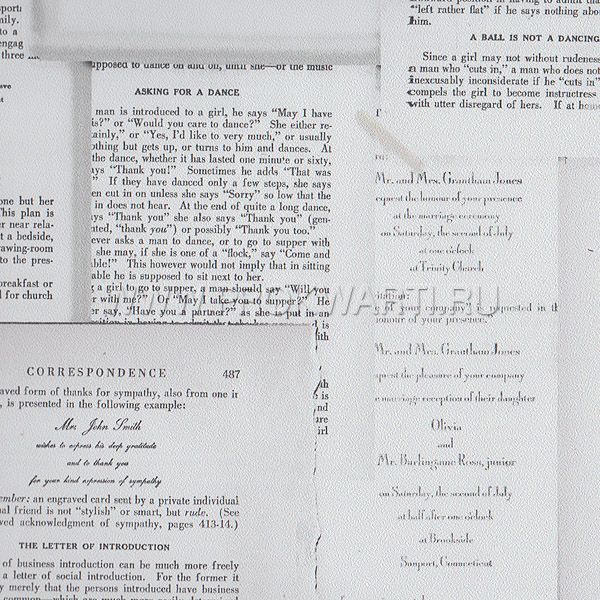 sport
mily.
to a
engag
three
one but her
This plan is
r near rela-
t a bedside,
awing-room
to the pres-
breakfast or
l for church
upposed to dance on and on, until she—or the music
ASKING FOR A DANCE
man is introduced to a girl, he says "May I have
is?" or "Would you care to dance?" She either re-
ainly," or "Yes, I'd like to very much," or usually
othing but gets up, or turns to him and dances. At
the dance, whether it has lasted one minute or sixty,
ays "Thank you!" Sometimes he adds "That was
" If they have danced only a few steps, she says
en cut in on unless she says "Sorry" so low that the
in does not hear. At the end of quite a long dance,
ys "Thank you" she also says "Thank you" (gen-
nted, "thank you") or possibly "Thank you too."
ever asks a man to dance, or to go to supper with
she may, if she is one of a "flock," say "Come and
able!" This however would not imply that in sitting
able he is supposed to sit next to her.
g a girl to go to supper, a man should say "Will you
r with me?" Or "May I take you to supper?" He
er say, "Have you a partner?" as she is put in an
"left rather flat" if he says nothing abo
him.
A BALL IS NOT A DANCING
Since a girl may not without rudeness
a man who "cuts in," a man who does not
inexcusably inconsiderate if he "cuts in"
compels the girl to become instructress
with utter disregard of hers. If at home
Mr. and Mrs. Grantham Jones
equest the honour of your presence
at the marriage ceremony
on Saturday, the second of July
at one o'clock
at Trinity Church
your company is requested in th
onour of your presence."
Mr. and Mrs. Grantham Jones
quest the pleasure of your company
e marriage reception of their daughter
Olivia
and
Mr. Burlingame Ross, junior
on Saturday, the second of July
at half after one o'clock
at Brookside
Sunport, Connecticut
CORRESPONDENCE 487
aved form of thanks for sympathy, also from one ir
, is presented in the following example:
Mr. John Smith
wishes to express his deep gratitude
and to thank you
for your kind expression of sympathy
ember: an engraved card sent by a private individual
al friend is not "stylish" or smart, but rude. (See
ved acknowledgment of sympathy, pages 413-14.)
THE LETTER OF INTRODUCTION
of business introduction can be much more freely
a letter of social introduction. For the former it
y merely that the persons introduced have business